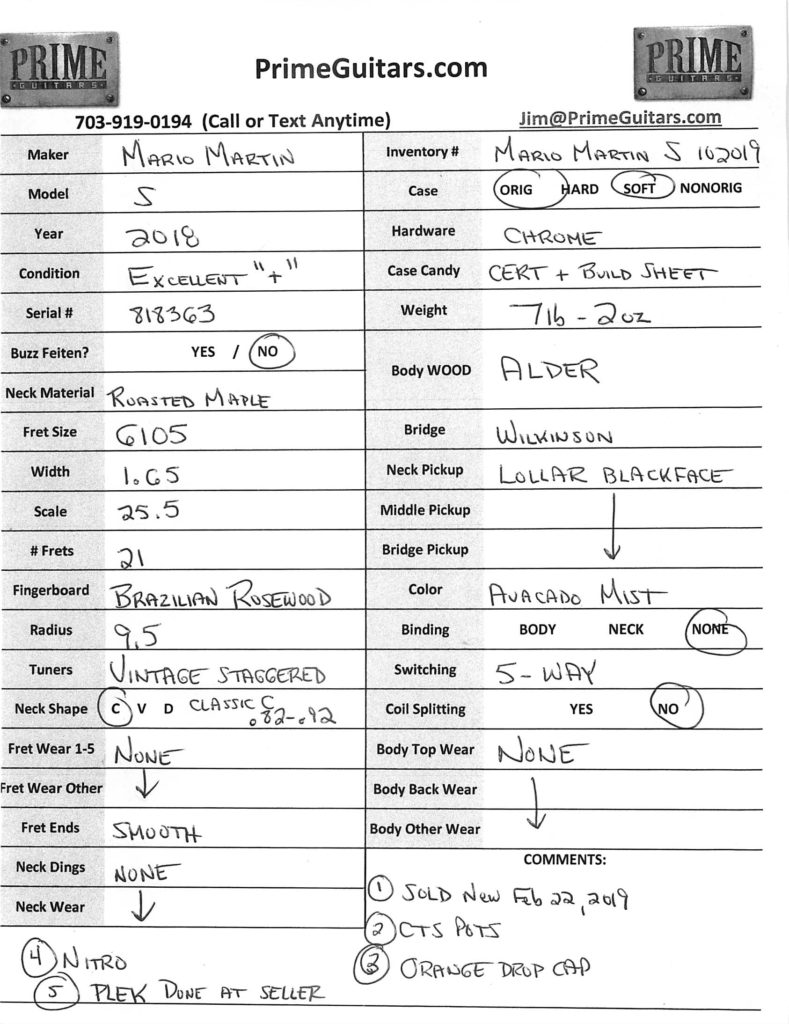 PRIME
GUITARS
PrimeGuitars.com
PRIME
GUITARS
703-919-0194 (Call or Text Anytime)
Jim@PrimeGuitars.com
Maker MARIO MARTIN
Inventory # MARIO MARTIN S 102019
Model S
Case ORIG HARD SOFT NONORIG
Year 2018
Hardware CHROME
Condition EXCELLENT "+"
Case Candy CERT + BUILD SHEET
Serial # 818363
Weight 7lb - 2oz
Buzz Feiten? YES / NO
Body WOOD ALDER
Neck Material ROASTED MAPLE
Fret Size 6105
Bridge WILKINSON
Width 1.65
Neck Pickup LOLLAR BLACKFACE
Scale 25.5
Middle Pickup
# Frets 21
Bridge Pickup
Fingerboard BRAZILIAN ROSEWOOD
Color AVACADO MIST
Radius 9.5
Binding BODY NECK NONE
Tuners VINTAGE STAGGERED
Switching 5-WAY
Neck Shape C V D CLASSIC C
.82-.92
Coil Splitting YES NO
Fret Wear 1-5 NONE
Body Top Wear NONE
Fret Wear Other
Body Back Wear
Fret Ends SMOOTH
Body Other Wear
Neck Dings NONE
Neck Wear
COMMENTS:
1 SOLD New Feb 22, 2019
2 CTS POTS
3 ORANGE DROP CAP
4 NITRO
5 PLEK DONE AT SELLER